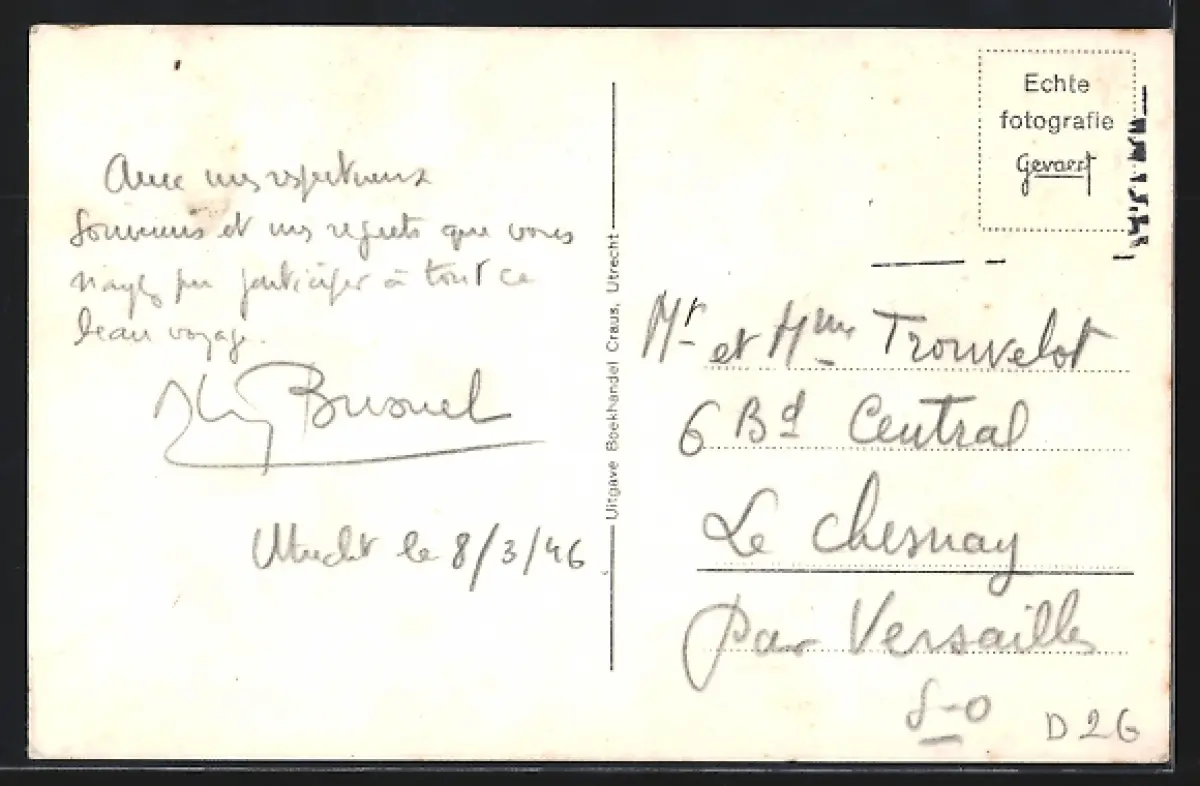 Avec mes respectueux
Souvenirs et mes regrets que vous
n'ayez pu participer à tout ce
beau voyage.
Brunel
Utrecht le 8/3/46
Uitgave Boekhandel Craus, Utrecht
Echte
fotografie
Gevaert
Mr et Mme Trouvelot
6 Bd Central
Le Chesnay
Par Versailles
S-O
D26